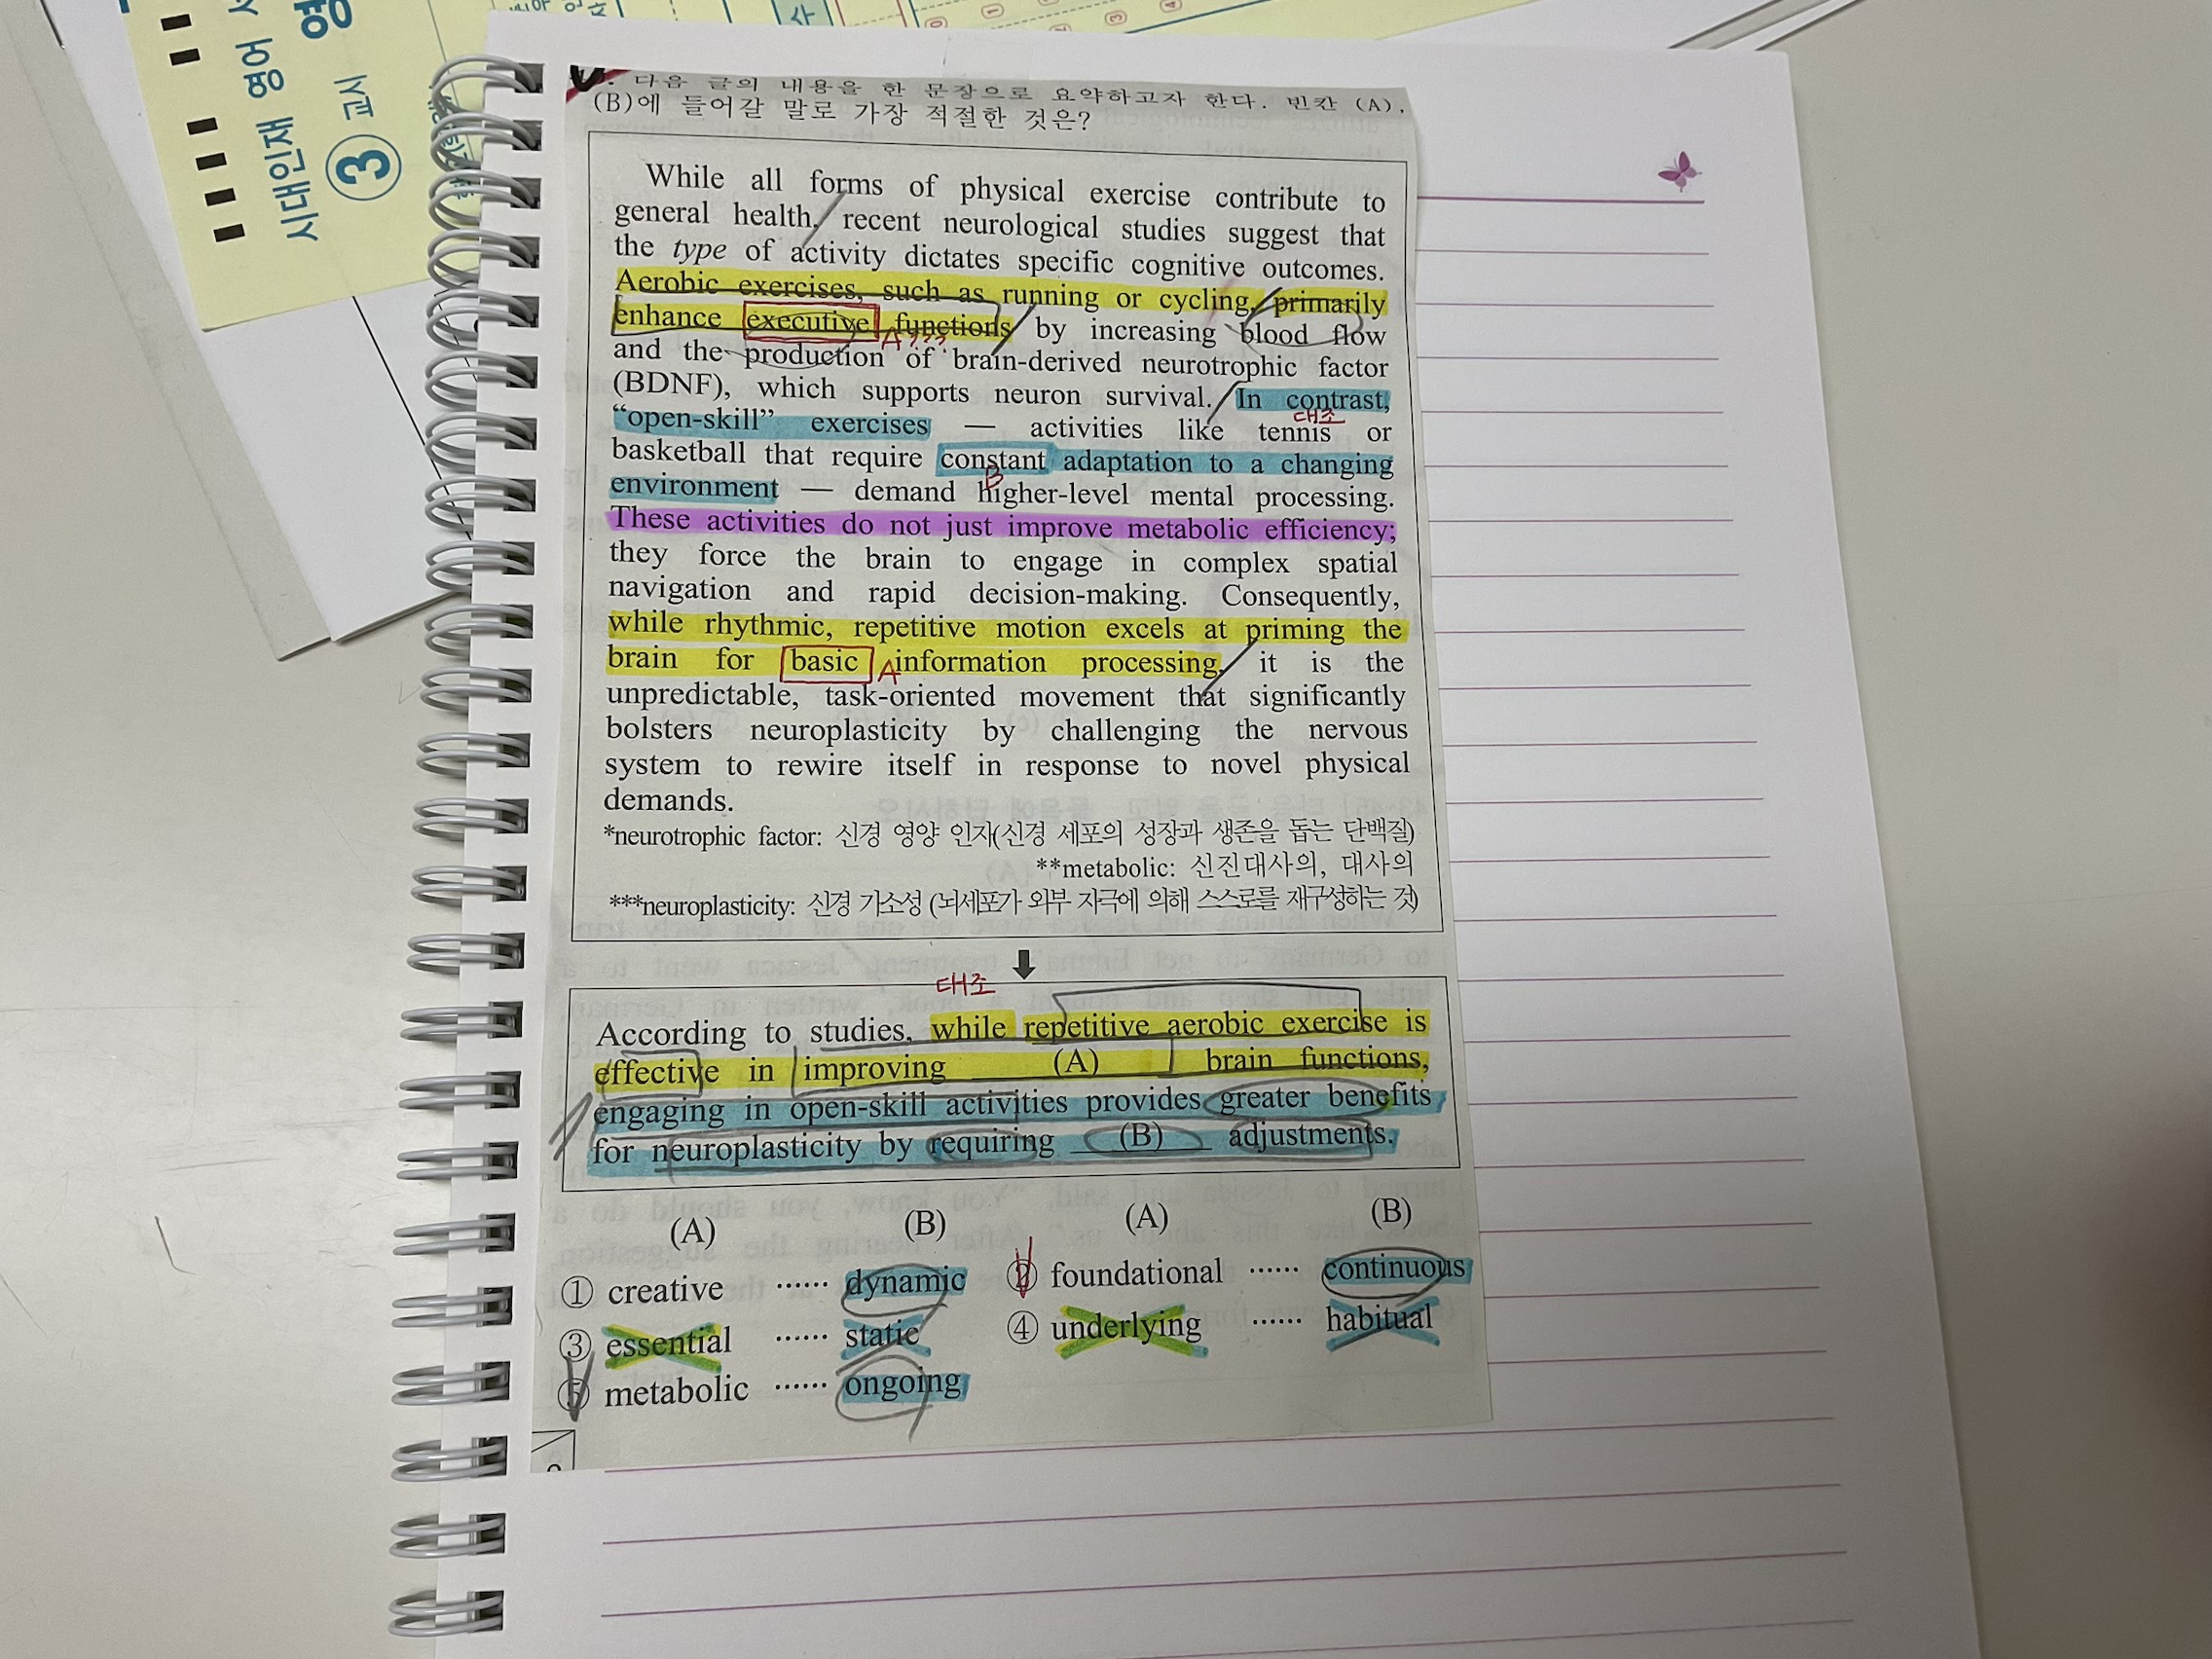 시대인재 영어
③ 교시
다음 글의 내용을 한 문장으로 요약하고자 한다. 빈칸 (A),
(B)에 들어갈 말로 가장 적절한 것은?
While all forms of physical exercise contribute to
general health, recent neurological studies suggest that
the type of activity dictates specific cognitive outcomes.
Aerobic exercises, such as running or cycling, primarily
enhance executive functions by increasing blood flow
A???
and the production of brain-derived neurotrophic factor
(BDNF), which supports neuron survival. In contrast,
대조
“open-skill” exercises — activities like tennis or
basketball that require constant adaptation to a changing
B
environment — demand higher-level mental processing.
These activities do not just improve metabolic efficiency;
they force the brain to engage in complex spatial
navigation and rapid decision-making. Consequently,
while rhythmic, repetitive motion excels at priming the
brain for basic information processing, it is the
A
unpredictable, task-oriented movement that significantly
bolsters neuroplasticity by challenging the nervous
system to rewire itself in response to novel physical
demands.
*neurotrophic factor: 신경 영양 인자(신경 세포의 성장과 생존을 돕는 단백질)
**metabolic: 신진대사의, 대사의
***neuroplasticity: 신경 가소성 (뇌세포가 외부 자극에 의해 스스로를 재구성하는 것)
대조
According to studies, while repetitive aerobic exercise is
effective in improving (A) brain functions,
engaging in open-skill activities provides greater benefits
for neuroplasticity by requiring (B) adjustments.
(A) (B) (A) (B)
① creative ...... dynamic ② foundational ...... continuous
③ essential ...... static ④ underlying ...... habitual
⑤ metabolic ...... ongoing